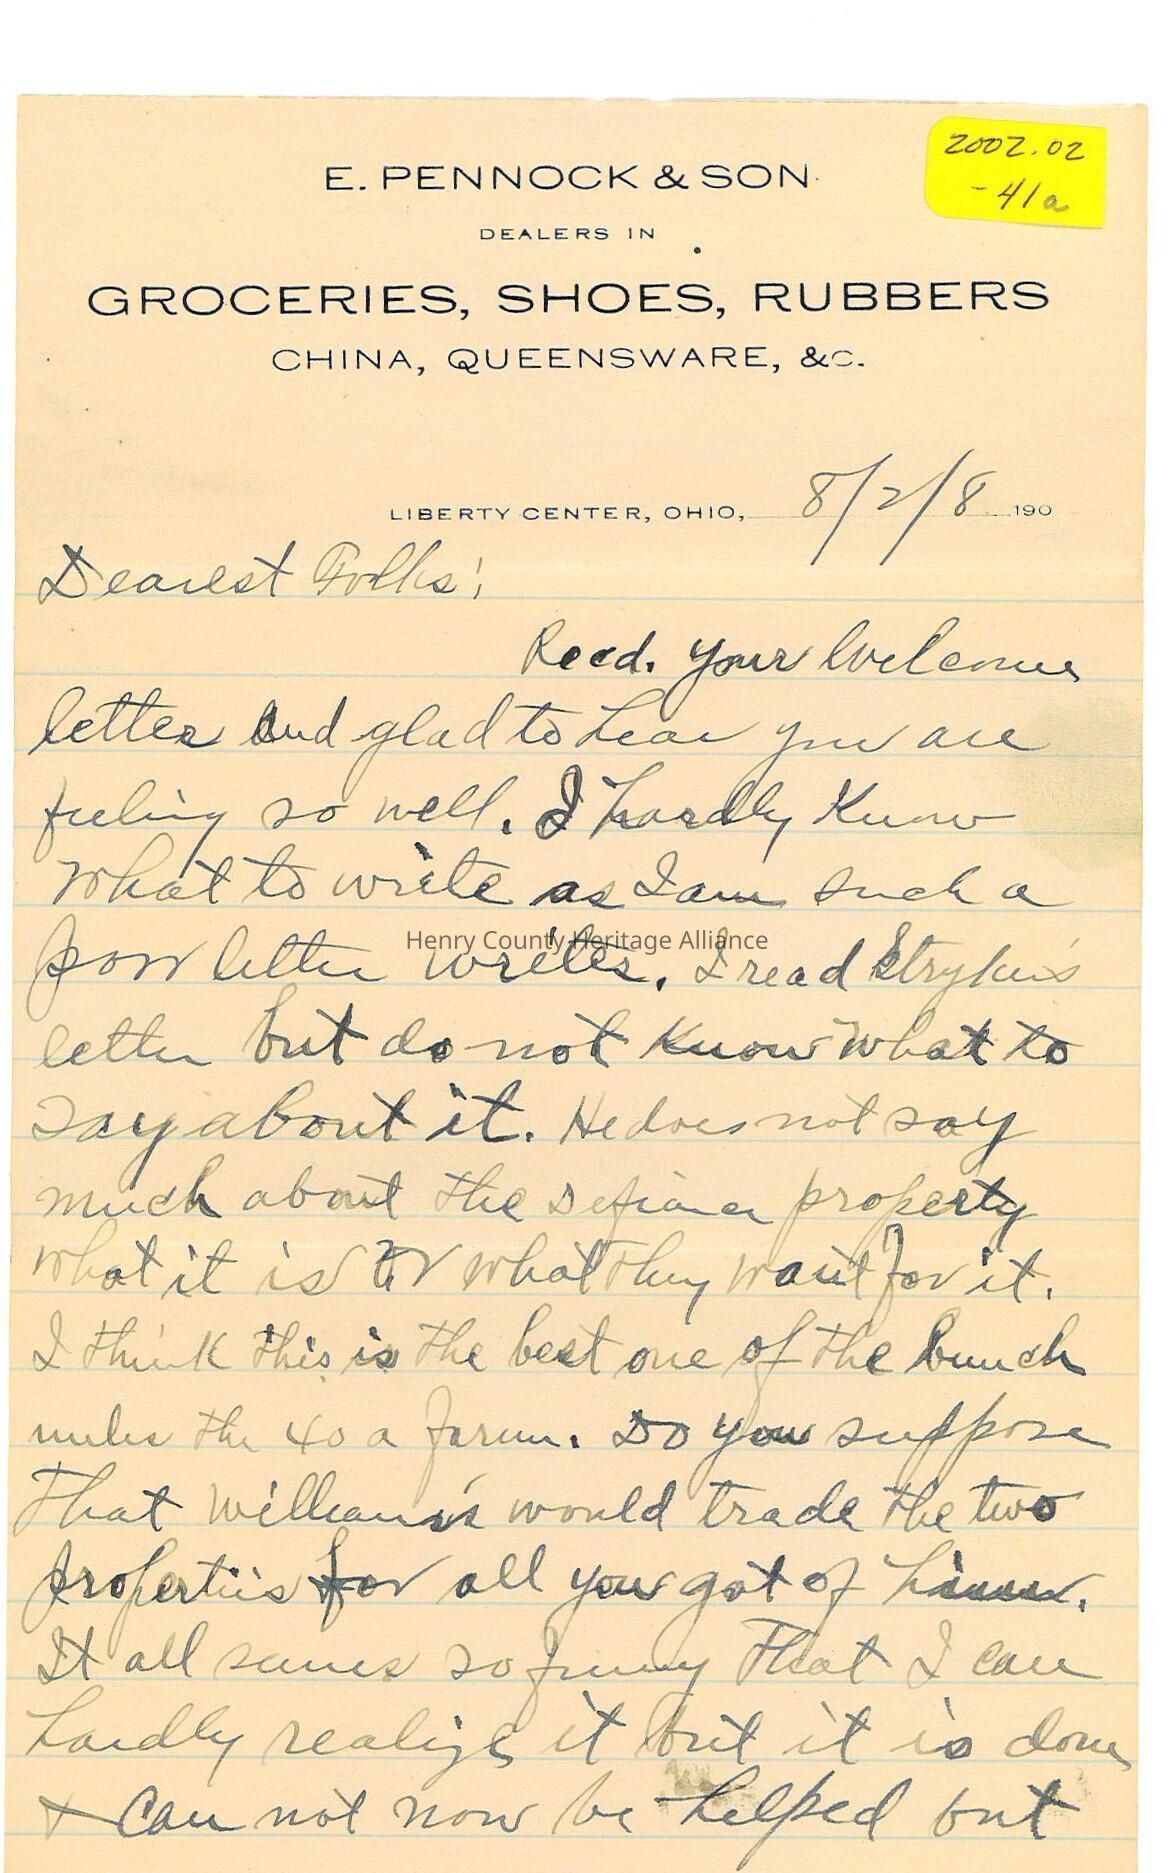 2002.02
-41a
E. PENNOCK & SON
DEALERS IN
GROCERIES, SHOES, RUBBERS
CHINA, QUEENSWARE, &C.
LIBERTY CENTER, OHIO, 8/2/8 190
Dearest Folks;
Recd. your welcome
letter and glad to hear you are
feeling so well. I hardly know
what to write as I am such a
poor letter writer. I read Stryker's
Henry County Heritage Alliance
letter but do not know what to
say about it. He does not say
much about the Defiance property
what it is or what they want for it.
I think this is the best one of the bunch
unless the 40 a farm. Do you suppose
that William's would trade the two
properties for all you got of him.
It all seems so funny that I can
hardly realize it but it is done
& can not now be helped but